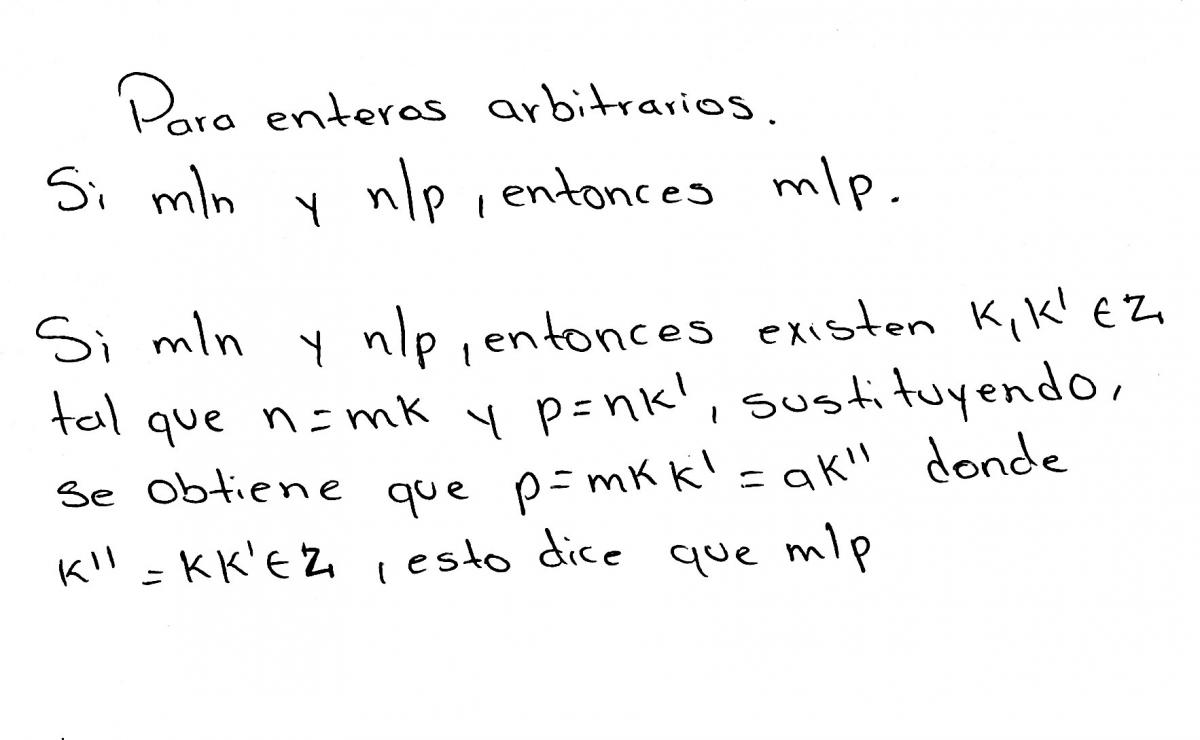 Para enteros arbitrarios.
Si m|n y n|p, entonces m|p.
Si m|n y n|p, entonces existen K, K' ∈ ℤ
tal que n = mK y p = nK', sustituyendo,
se obtiene que p = mKK' = aK'' donde
K'' = KK' ∈ ℤ, esto dice que m|p